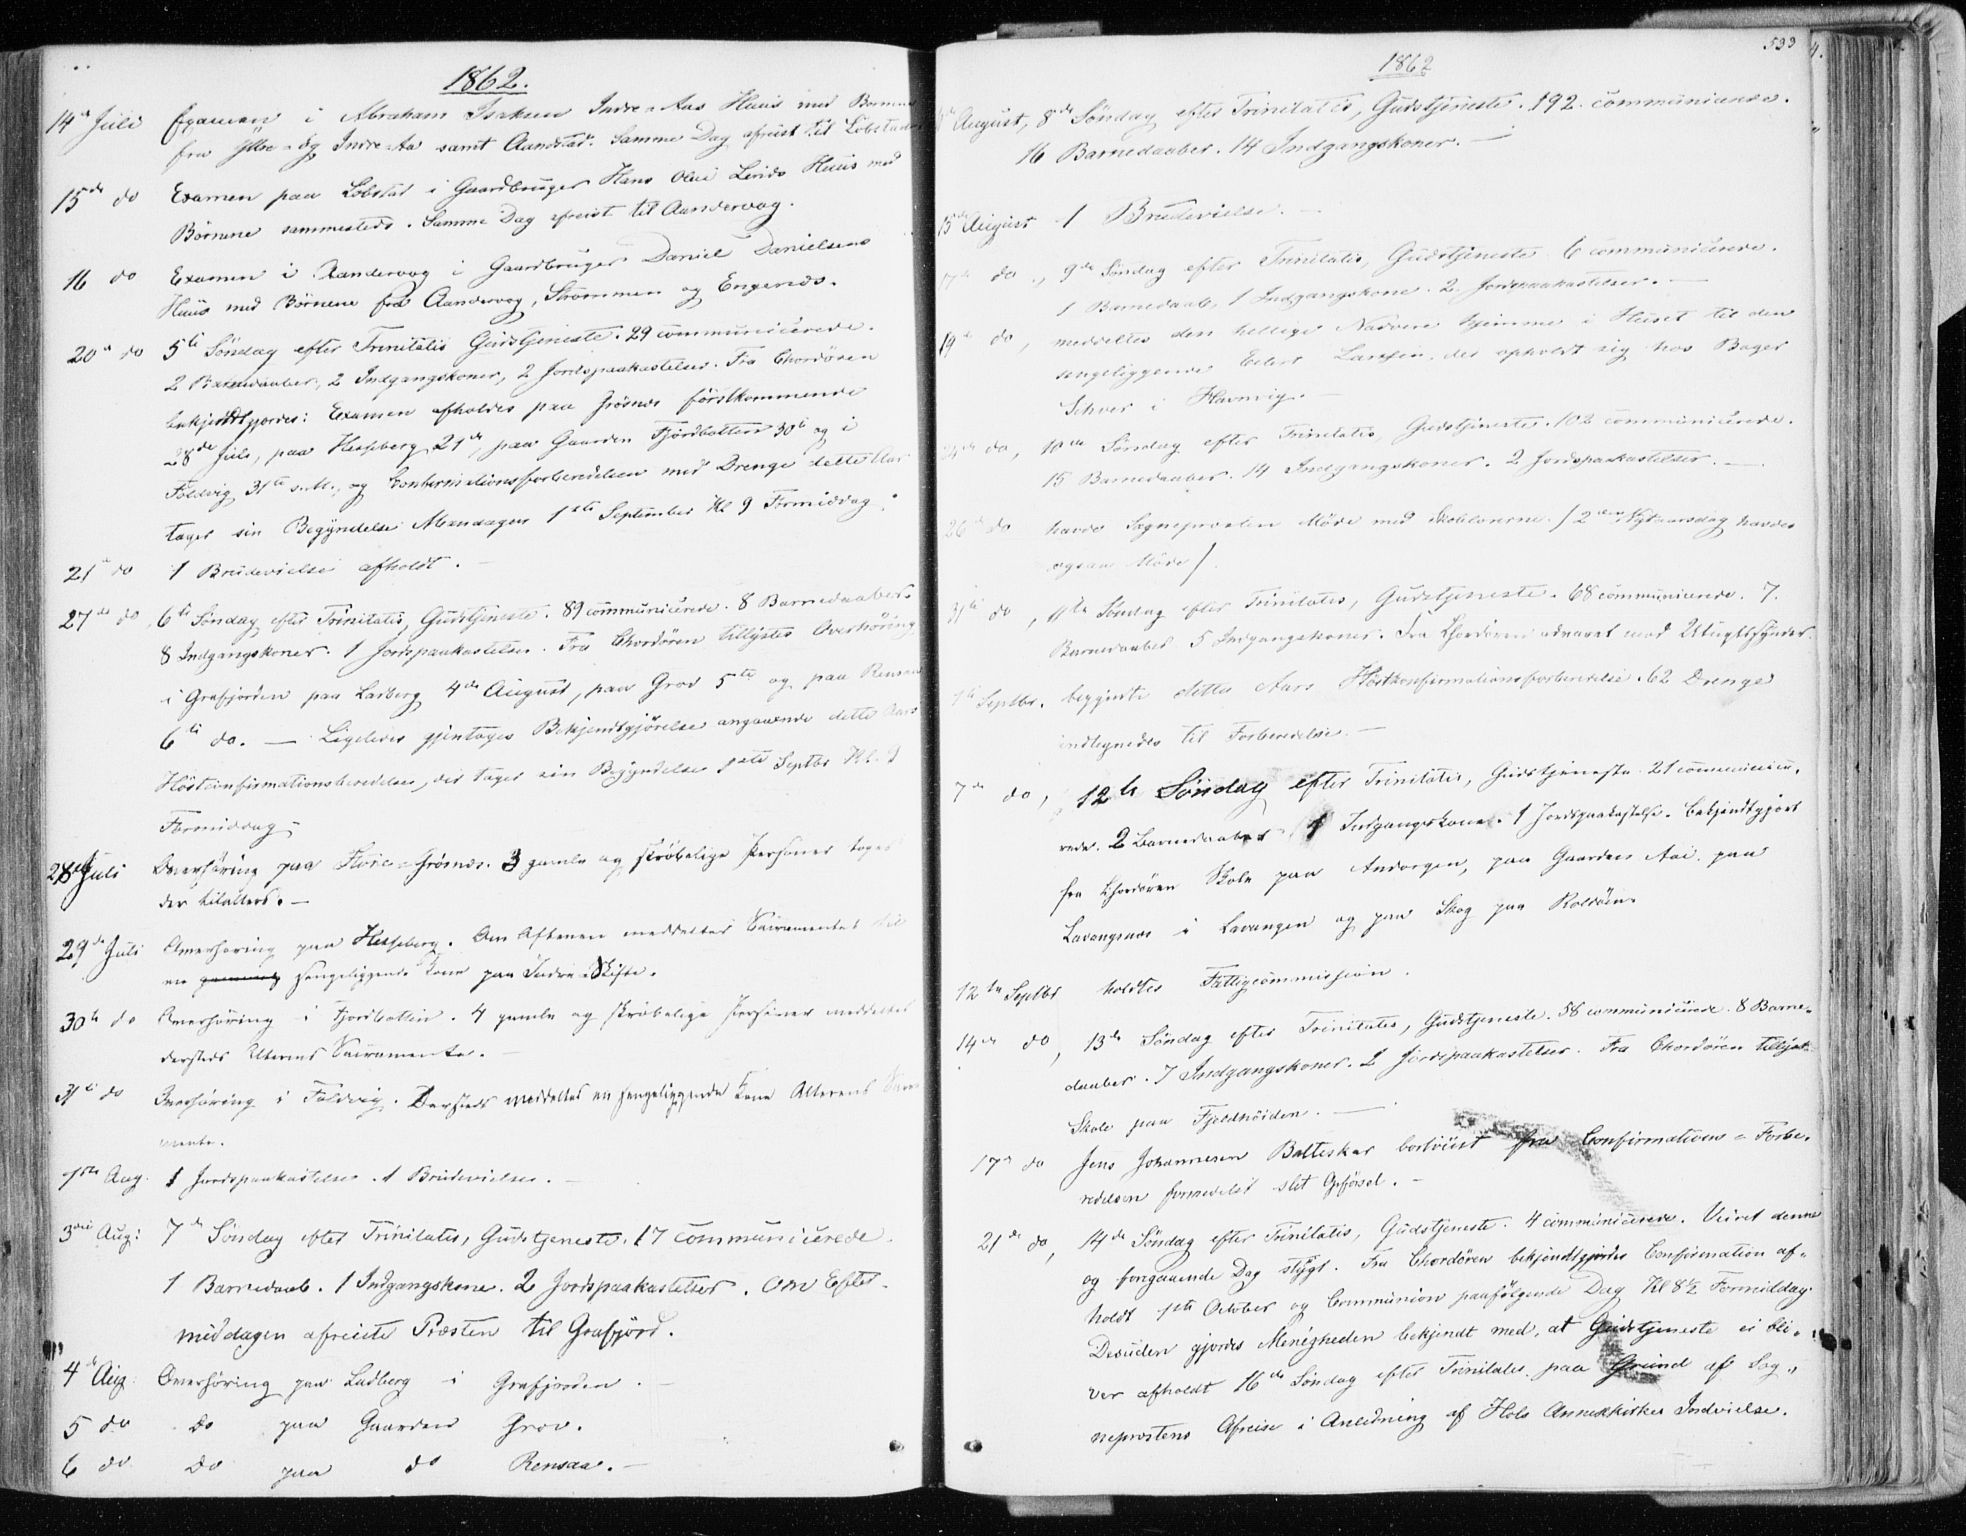 1862.
14de Juli Examen i Abraham Isaksen Indre-Aas Huus med Børnene
fra Ytre- og Indre-Aa samt Aandstad. Samme Dag afreist til Lobstad
15de do Examen paa Lobstad i Gaardbruger Hans Olai Huus med
Børnene sammesteds. Samme Dag afreist til Aandervag.
16 do Examen i Aandervag i Gaardbruger Daniel Danielsens
Huus med Børnene fra Aandervag, Strømmen og Engenes.
20de do 5te Søndag efter Trinitatis Gudstjeneste. 29 communicerede.
2 Barnedaaber, 2 Indgangskoner, 2 Jordspaakastelser. Fra Chordøren
bekjendtgjordes: Examen afholdes paa Grøsnes førstkommende
28de Juli, paa Hesseberg 29de, paa Gaarden Fjordbotten 30te og i
Foldvig 31te s.M., og Confirmationsforberedelsen med Drenge dette Aar
tager sin Begyndelse Mandagen 1ste September Kl 9 Formiddag.
21de do 1 Brudevielse afholdt.
27de do, 6te Søndag efter Trinitatis, Gudstjeneste. 89 communicerede. 8 Barnedaaber.
8 Indgangskoner. 1 Jordspaakastelse. Fra Chordøren tillystes Overhøring
i Grafjorden paa Ladberg 4de August, paa Grov 5te og paa Rensaa
6te do. — Ligeledes gjentoges Bekjendtgjørelse angaaende dette Aars
Høstconfirmationsberedelse, der tager sin Begyndelse 1ste Septbr Kl. 9
Formiddag.
28de Juli Overhøring paa Store-Grøsnes. 3 gamle og skrøbelige Personer toges
der tilalters. —
29de Juli Overhøring paa Hesseberg. Om Aftenen meddeltes Sacramentet til
en gammel sengeliggende Kone paa Indre-Skifte.
30te do Overhøring i Fjordbotten. 4 gamle og skrøbelige Personer meddeltes
dersteds Alterens Sacramente. —
31te do Overhøring i Foldvig. Dersteds meddeltes en sengeliggende Kone Alterens Sacra
mente.
1ste Aug. 1 Jordspaakastelse. 1 Brudevielse. —
3die Aug: 7de Søndag efter Trinitatis, Gudstjeneste. 17 communicerede.
1 Barnedaab. 1 Indgangskone. 2 Jordspaakastelser. Om Efter-
middagen afreiste Præsten til Grafjord.
4de Aug. Overhøring paa Ladberg i Grafjorden. —
5 do do paa Gaarden Grov.
6 do do paa do Rensaa. —
533
1862
August, 8de Søndag efter Trinitatis, Gudstjeneste. 192 communicerede.
16 Barnedaaber. 14 Indgangskoner. —
15de August 1 Brudevielse. —
17de do, 9de Søndag efter Trinitatis, Gudstjeneste 6 communicerede.
1 Barnedaab, 1 Indgangskone. 2 Jordspaakastelser. —
19de do, meddeltes den hellige Nadvere hjemme i Huset til den
sengeliggende Larsen, der opholdt sig hos Bager
i Havnvig. —
do, 10de Søndag efter Trinitatis, Gudstjeneste. 102 communicerede.
15 Barnedaaber. 14 Indgangskoner. 2 Jordspaakastelser. —
26de do havde Sogneprosten Møde med Skolelærerne. / 2den Nytaarsdag havdes
ogsaa Møde /.
31te do, 11te Søndag efter Trinitatis, Gudstjeneste. 68 communicerede. 7
Barnedaaber 5 Indgangskoner. Fra Chordøren advaret mod Utugtssynder.
1ste Septbr. begyndte dette Aars Høstkonfirmationsforberedelse. 62 Drenge
indtegnedes til Forberedelse. —
7de do, 12te Søndag efter Trinitatis, Gudstjeneste. 21 communice-
rede. 2 Barnedaaber 1 Indgangskone. 1 Jordspaakastelse. Bekjendtgjort
fra Chordøren Skole paa Andorgen, paa Gaarden Aai, paa
Lavangsnæs i Lavangen og paa Skog paa Rolløen.
12te Septbr holdtes Fattigcommission.
14de do, 13de Søndag efter Trinitatis, Gudstjeneste. 58 communicerede. 8 Barne-
daaber. 7 Indgangskoner. 2 Jordspaakastelser. Fra Chordøren tillyst
Skole paa Fjeldhøiden. —
17de do Jens Johannesen Balteskar bortviist fra Confirmations-Forbe-
redelsen formedelst slet Opførsel. —
21de do, 14de Søndag efter Trinitatis, Gudstjeneste. 4 communicerede. Veiret denne
og foregaaende Dag stygt. Fra Chordøren bekjendtgjordes Confirmation af-
holdt 1ste October og Communion paafølgende Dag Kl 8½ Formiddag.
Desuden gjordes Menigheden bekjendt med, at Gudstjeneste ei bli-
ver afholdt 16de Søndag efter Trinitatis paa Grund af Sog-
neprostens Afreise i Anledning af Hols Annexkirkes Indvielse.